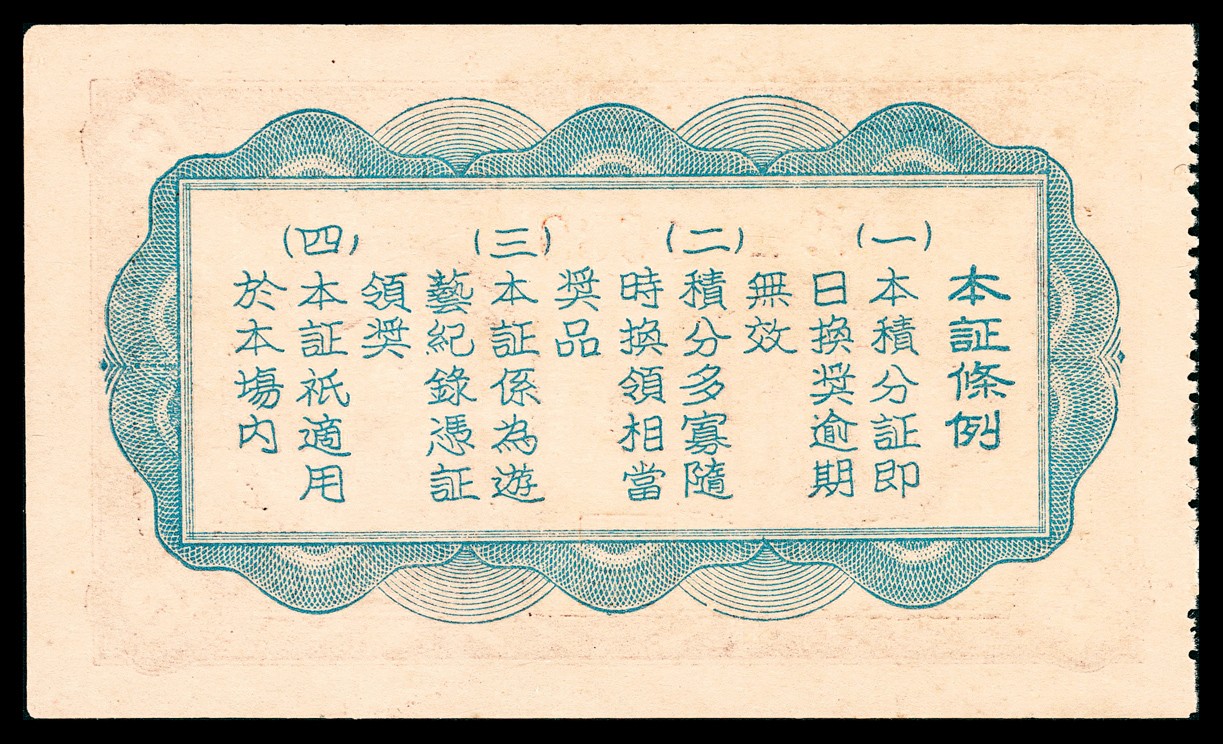 本証條例
(一)本積分証即
日換奨逾期
無效
(二)積分多寡隨
時換領相當
奨品
(三)本証係為遊
藝紀錄憑証
領奨
(四)本証祇適用
於本塲内